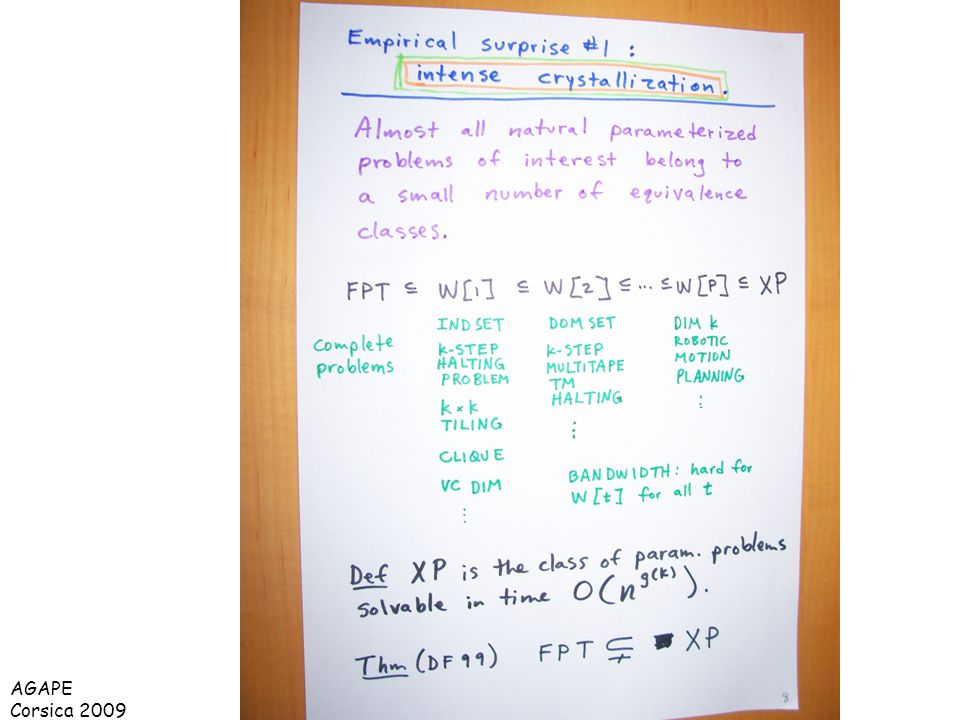 Empirical surprise #1 :
intense crystallization.
Almost all natural parameterized
problems of interest belong to
a small number of equivalence
classes.
FPT ⊆ W[1] ⊆ W[2] ⊆ ... ⊆ W[P] ⊆ XP
complete
problems
IND SET
k-STEP
HALTING
PROBLEM
k × k
TILING
CLIQUE
VC DIM
⋮
DOM SET
k-STEP
MULTITAPE
TM
HALTING
⋮
DIM k
ROBOTIC
MOTION
PLANNING
⋮
BANDWIDTH: hard for
W[t] for all t
Def XP is the class of param. problems
solvable in time O(n^g(k)).
Thm (DF 99) FPT ⊊ XP
8
AGAPE
Corsica 2009